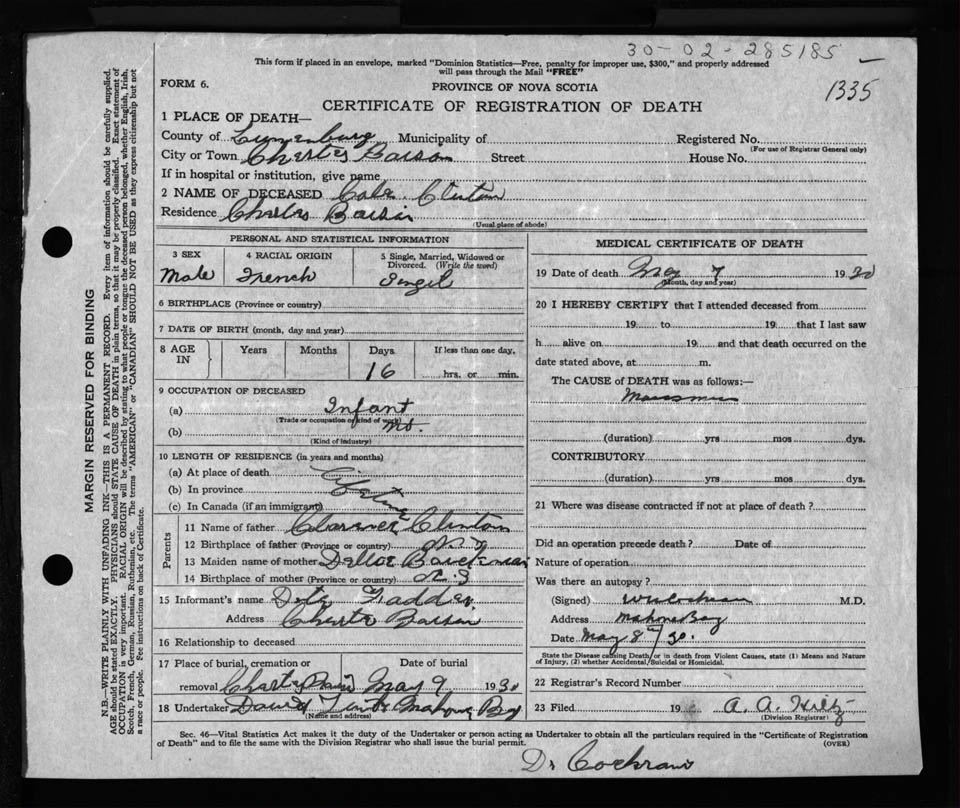 30-02-285185
1335
This form if placed in an envelope, marked "Dominion Statistics—Free, penalty for improper use, $300," and properly addressed
will pass through the Mail "FREE"
FORM 6.
PROVINCE OF NOVA SCOTIA
CERTIFICATE OF REGISTRATION OF DEATH
MARGIN RESERVED FOR BINDING
N.B.—WRITE PLAINLY WITH UNFADING INK—THIS IS A PERMANENT RECORD. Every item of information should be carefully supplied.
AGE should be stated EXACTLY. PHYSICIANS should STATE CAUSE OF DEATH in plain terms, so that it may be properly classified. Exact statement of
OCCUPATION is very important. RACIAL ORIGIN will be described by stating to what people or tongue the deceased person belonged, whether English, Irish,
Scotch, French, German, Russian, Ruthenian, etc. The terms "AMERICAN" or "CANADIAN" SHOULD NOT BE USED as they express citizenship but not
a race or people. Fee instructions on back of Certificate.
1 PLACE OF DEATH—
County of Lunenburg Municipality of Registered No.
(For use of Registrar General only)
City or Town Street House No.
If in hospital or institution, give name
2 NAME OF DECEASED Clinton
Residence
(Usual place of abode)
PERSONAL AND STATISTICAL INFORMATION
3 SEX 4 RACIAL ORIGIN 5 Single, Married, Widowed or
Divorced. (Write the word)
Male French Singel
6 BIRTHPLACE (Province or country)
7 DATE OF BIRTH (month, day and year)
8 AGE IN Years Months Days If less than one day,
16 hrs. or min.
9 OCCUPATION OF DECEASED
(a) Infant
(Trade or occupation or kind of work)
(b) No.
(Kind of industry)
10 LENGTH OF RESIDENCE (in years and months)
(a) At place of death
(b) In province
(c) In Canada (if an immigrant)
Parents
11 Name of father Clinton
12 Birthplace of father (Province or country) N.S
13 Maiden name of mother
14 Birthplace of mother (Province or country) N.S
15 Informant's name
Address
16 Relationship to deceased
17 Place of burial, cremation or Date of burial
removal May 9 1930
18 Undertaker David Mahone Bay
(Name and address)
MEDICAL CERTIFICATE OF DEATH
19 Date of death May 7 1930
(Month, day and year)
20 I HEREBY CERTIFY that I attended deceased from
19 to 19 that I last saw
h alive on 19 and that death occurred on the
date stated above, at m.
The CAUSE of DEATH was as follows:—
Marasmus
(duration) yrs mos dys.
CONTRIBUTORY
(duration) yrs mos dys.
21 Where was disease contracted if not at place of death?
Did an operation precede death? Date of
Nature of operation
Was there an autopsy?
(Signed) M.D.
Address Mahone Bay
Date May 8th/30.
State the Disease causing Death, or in death from Violent Causes, state (1) Means and Nature
of Injury, (2) whether Accidental, Suicidal or Homicidal.
22 Registrar's Record Number
23 Filed 19 A. A. Hiltz
(Division Registrar)
Sec. 46—Vital Statistics Act makes it the duty of the Undertaker or person acting as Undertaker to obtain all the particulars required in the "Certificate of Registration
of Death" and to file the same with the Division Registrar who shall issue the burial permit.
(OVER)
Dr Cochrane